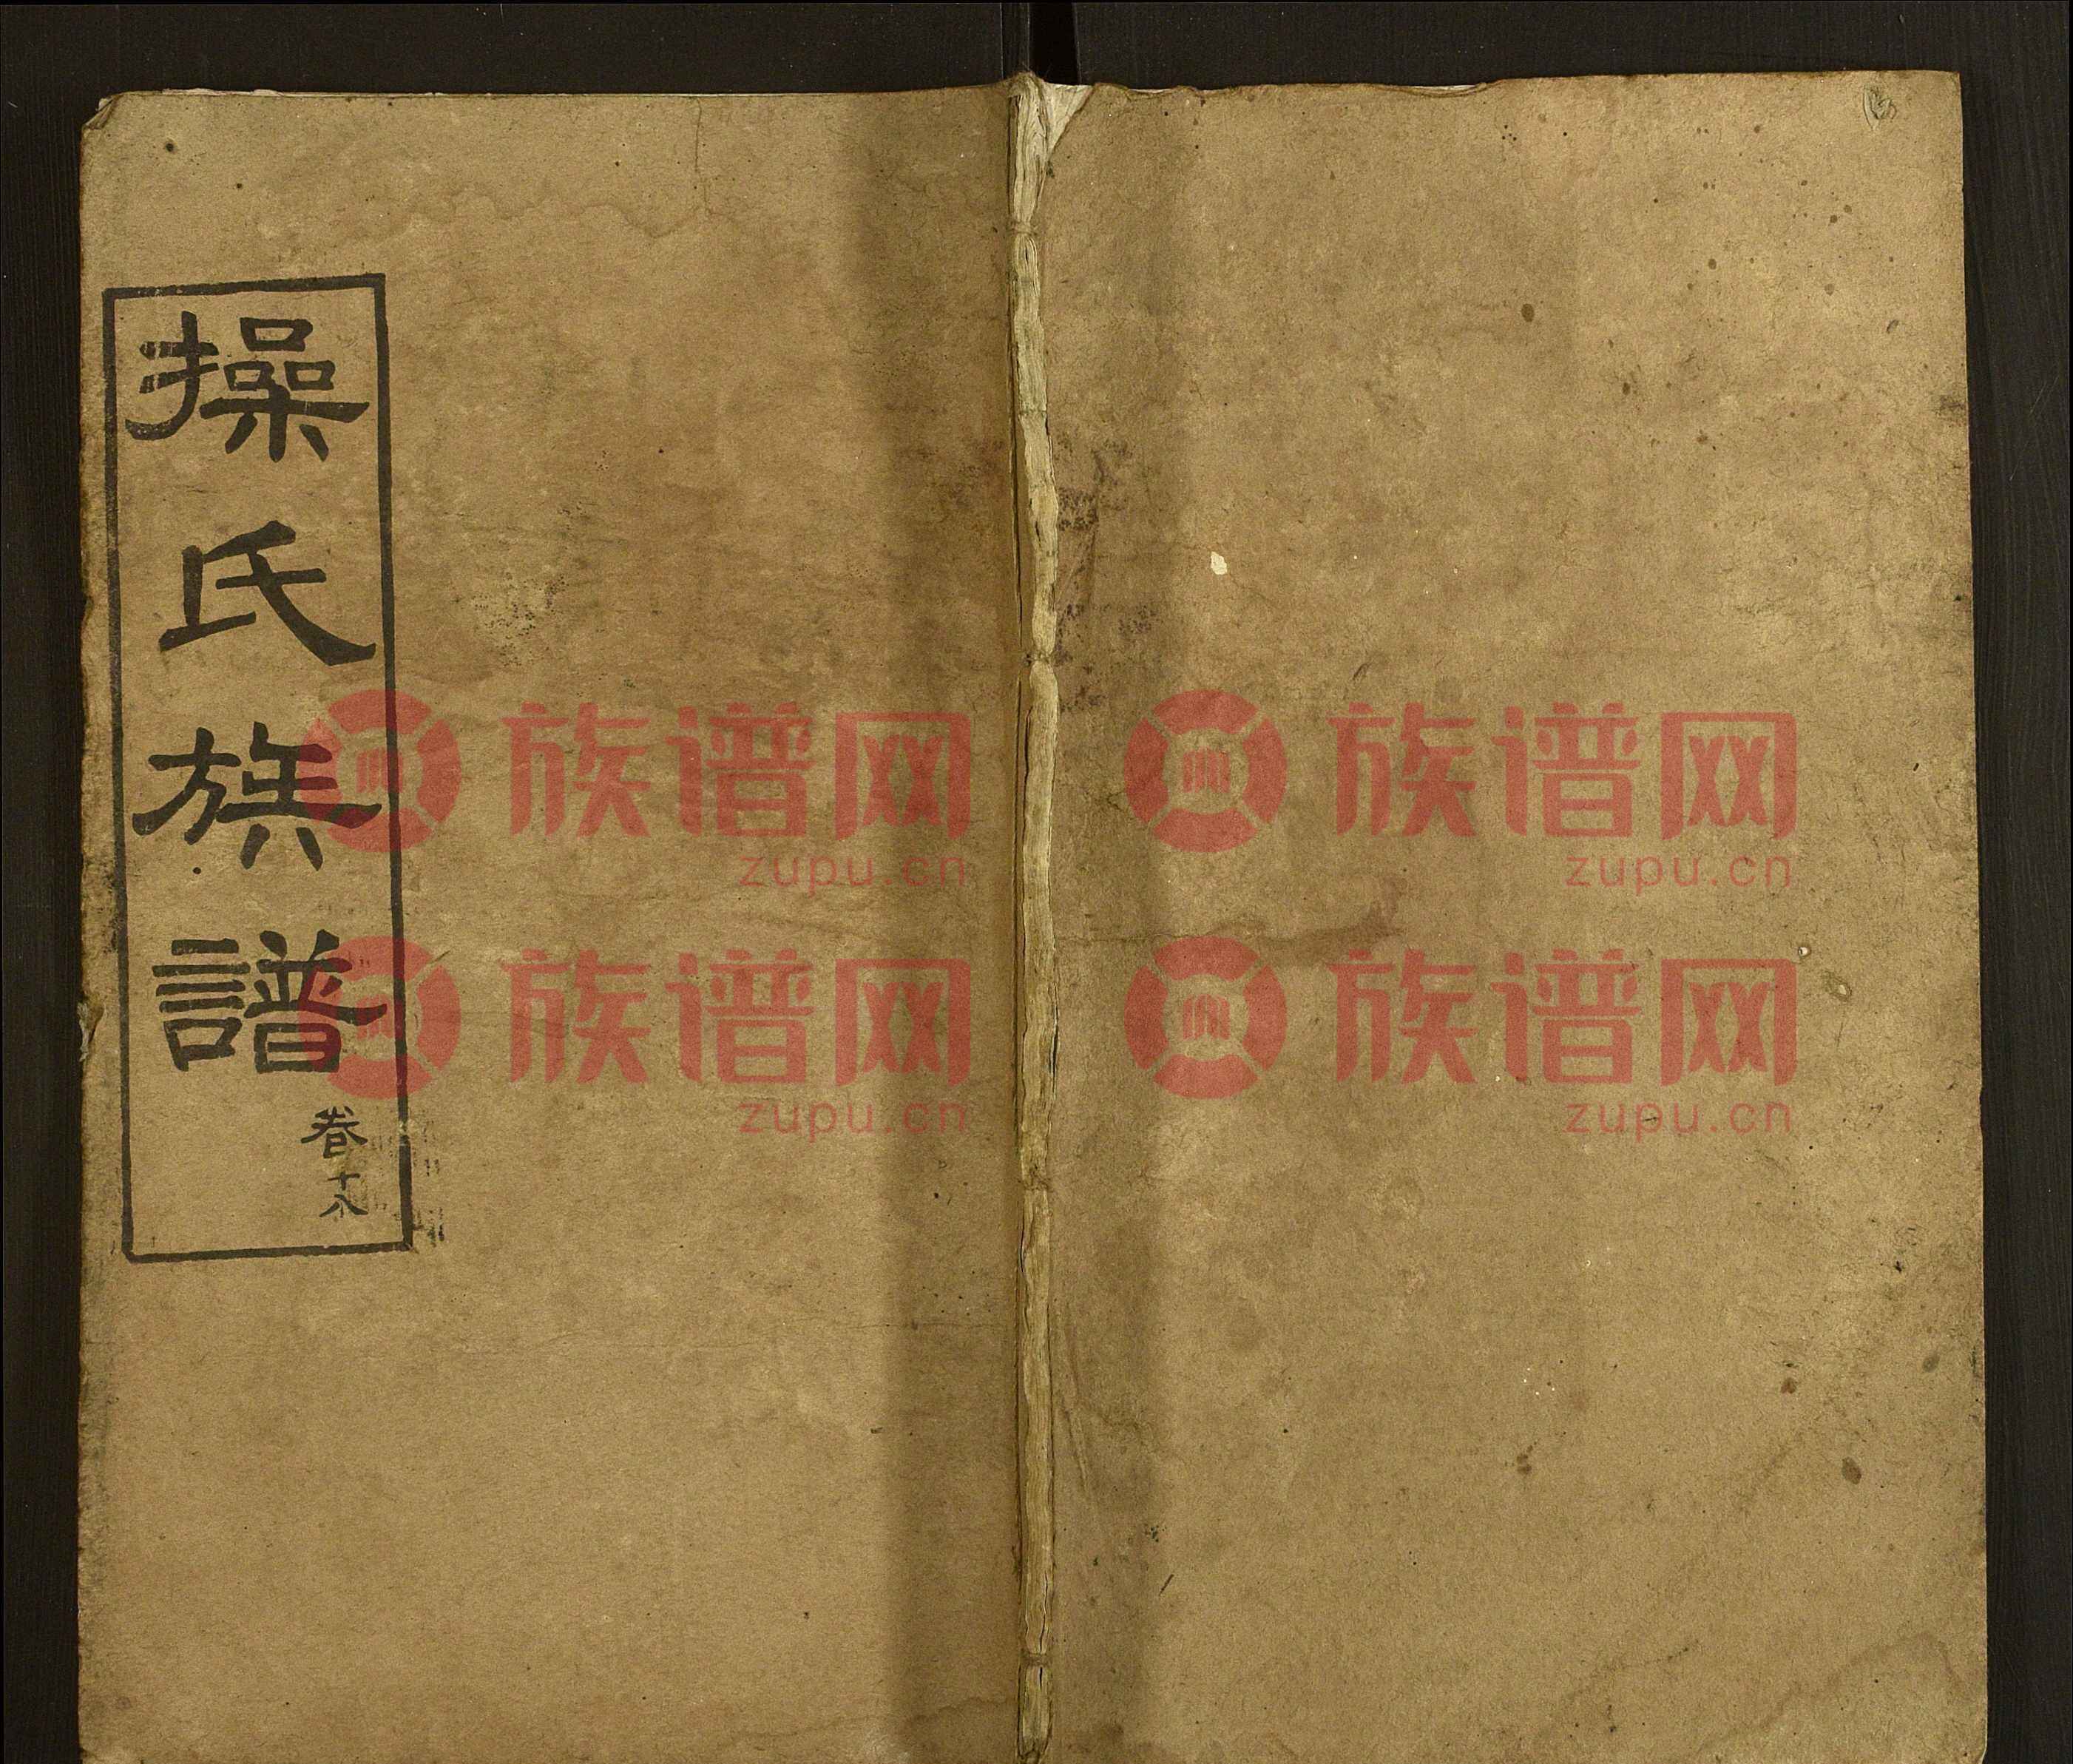 操氏族譜
卷十八
族谱网
zupu.cn
族谱网
zupu.cn
族谱网
zupu.cn
族谱网
zupu.cn